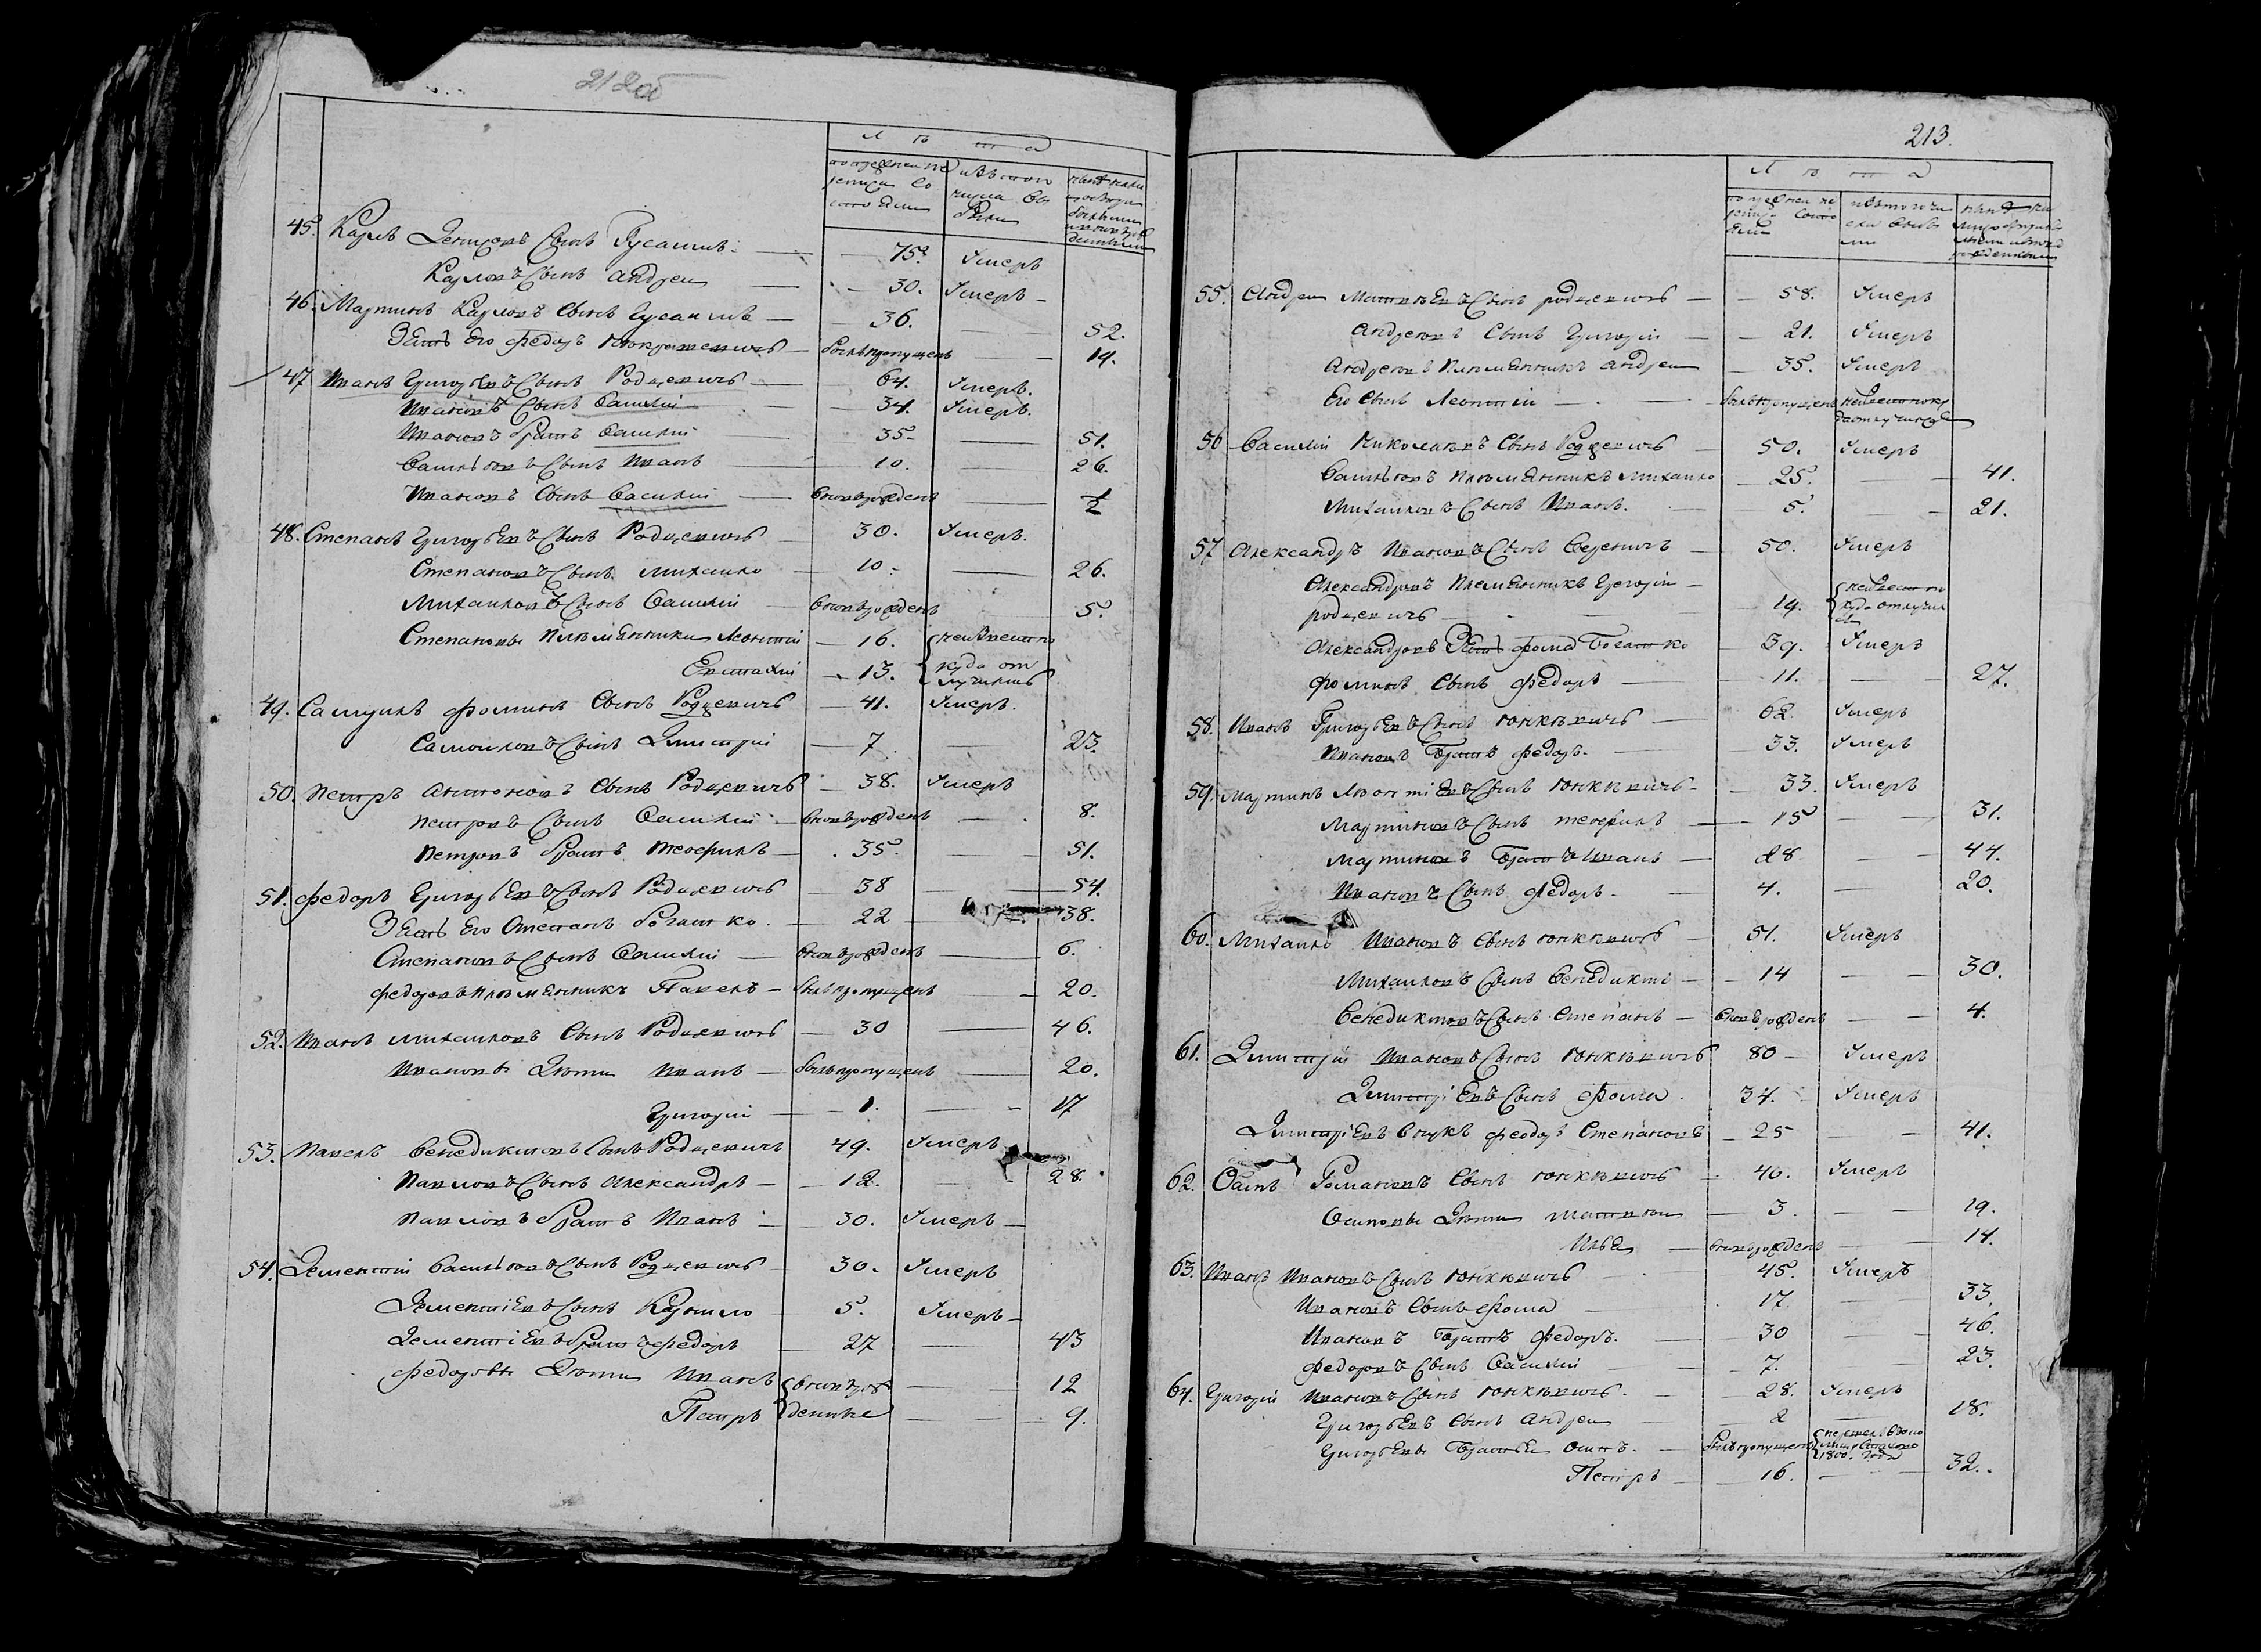 212об
Л ѣ т а
45. Карлъ Сынъ Гусаимъ 75. Умеръ
Карловъ Сынъ Андрей 30. Умеръ
46. Мартинъ Карловъ Сынъ 36. 52.
Зять Его Федоръ былъ пропущенъ 19.
47 Иванъ Григорьевъ Сынъ Родцевичъ 64. Умеръ.
Ивановъ Сынъ Василий 34. Умеръ.
Ивановъ Братъ Василий 35. 51.
Васильевъ Сынъ Иванъ 10. 26.
Ивановъ Сынъ Василий вновьрожденъ ½
48. Степанъ Григорьевъ Сынъ Родцевичъ 30. Умеръ.
Степановъ Сынъ Михайло 10. 26.
Михайловъ Сынъ Василий вновьрожденъ 5.
Степановы Племянники Леонтий 16. неизвестно
Евстафий 13. куда отлучились
49. Самуилъ Фоминъ Сынъ Родцевичъ 41. Умеръ.
Самойловъ Сынъ Дмитрий 7 23.
50. Петръ Антоновъ Сынъ Родцевичъ 38. Умеръ
Петровъ Сынъ Василий вновьрожденъ 8.
Петровъ Братъ Теофилъ 35. 51.
51. Федоръ Григорьевъ Сынъ Родцевичъ 38 54.
Зять Его Степанъ Богатко 22 38.
Степановъ Сынъ Василий вновьрожденъ 6.
Федоровъ Племянникъ Павелъ былъ пропущенъ 20.
52. Иванъ Михайловъ Сынъ Родцевичъ 30 46.
Ивановы Дѣти Иванъ былъ пропущенъ 20.
Григорий 1. 17
53. Павелъ Бенедиктовъ Сынъ Родцевичъ 49. Умеръ
Павловъ Сынъ Александръ 12. 28.
Павловъ Братъ Иванъ 30. Умеръ
54. Дементий Васильевъ Сынъ Родцевичъ 30. Умеръ
Дементиевъ Сынъ Кирило 5. Умеръ
Дементиевъ Братъ Федоръ 27 43
Федоровы Дѣти Иванъ вновьрож 12
Петръ денные 9.
213.
Л ѣ т а
55. Андрей Матвѣевъ Сынъ Родцевичъ 58. Умеръ
Андреевъ Сынъ Григорий 21. Умеръ
Андреевъ Племянникъ Андрей 35. Умеръ
Его Сынъ Леонтий былъ пропущенъ неизвестно ку
да отлучился
56 Василий Николаевъ Сынъ Родцевичъ 50. Умеръ
Васильевъ Племянникъ Михайло 25. 41.
Михайловъ Сынъ Иванъ. 5. 21.
57 Александръ Ивановъ Сынъ 50. Умеръ
Александровъ Племянникъ Григорий неизвестно
Родцевичъ 19. куда отлучил
ся
Александровъ Зять Фома Богатко 39. Умеръ
Фоминъ Сынъ Федоръ 11. 27.
58. Иванъ Григорьевъ Сынъ Юнкѣвичъ 62. Умеръ
Ивановъ Братъ Федоръ. 33. Умеръ
59. Мартинъ Леонтиевъ Сынъ Юнкѣвичъ 33. Умеръ
Мартиновъ Сынъ Теофилъ 15 31.
Мартиновъ Братъ Иванъ 28 44.
Ивановъ Сынъ Федоръ 4. 20.
60. Михайло Ивановъ Сынъ Юнкѣвичъ 51. Умеръ
Михайловъ Сынъ Бенедиктъ 14 30.
Бенедиктовъ Сынъ Степанъ вновьрожденъ 4.
61. Дмитрий Ивановъ Сынъ Юнкѣвичъ 80 Умеръ
Дмитриевъ Сынъ Фома. 34. Умеръ
Дмитриевъ Внукъ Феодоръ Степановъ 25 41.
62. Осипъ Романовъ Сынъ Юнкѣвичъ 40. Умеръ
Осиповы Дѣти Матвѣй 3. 19.
Илья вновьрожденъ 14.
63. Иванъ Ивановъ Сынъ Юнкѣвичъ 45. Умеръ
Ивановъ Сынъ Фома 17. 33.
Ивановъ Братъ Федоръ. 30 46.
Федоровъ Сынъ Василий 7. 23.
64. Григорий Ивановъ Сынъ Юнкѣвичъ. 28. Умеръ
Григорьевъ Сынъ Андрей 2 18.
Григорьевы Братья Осипъ. былъ пропущенъ 1800. года
Петръ 16. 32.